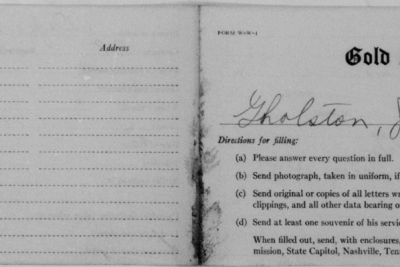 Address
FORM W-W-1
Gold
Gholston,
Directions for filling:
(a) Please answer every question in full.
(b) Send photograph, taken in uniform, if
(c) Send original or copies of all letters
clippings, and all other data bearing
(d) Send at least one souvenir of his
When filled out, send, with enclosures,
mission, State Capitol, Nashville,